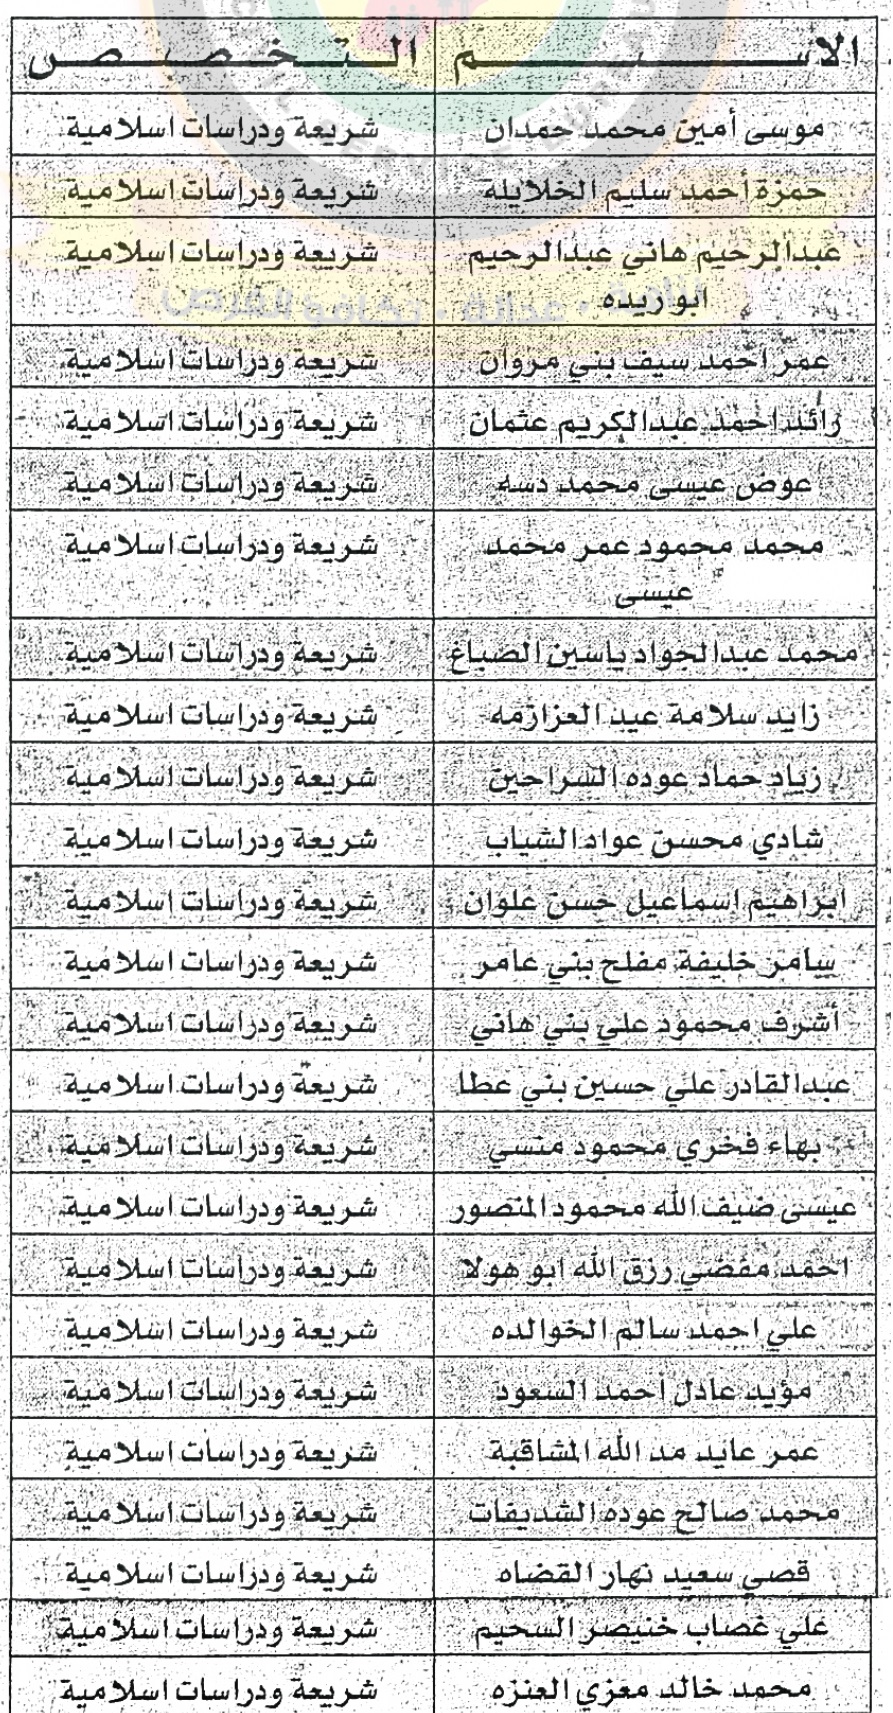 الاســـم التـخـصـص
موسى أمين محمد حمدان شريعة ودراسات اسلامية
حمزة أحمد سليم الخلايلة شريعة ودراسات اسلامية
عبدالرحيم هاني عبدالرحيم شريعة ودراسات اسلامية
ابو اريده
عدالة · تكافؤ الفرص
عمر احمد سيف بني مروان شريعة ودراسات اسلامية
رائد احمد عبدالكريم عثمان شريعة ودراسات اسلامية
عوض عيسى محمد دسه شريعة ودراسات اسلامية
محمد محمود عمر محمد شريعة ودراسات اسلامية
عيسى
محمد عبدالجواد ياسين الصباغ شريعة ودراسات اسلامية
زايد سلامة عيد العزازمه شريعة ودراسات اسلامية
زياد حماد عوده السراحين شريعة ودراسات اسلامية
شادي محسن عواد الشياب شريعة ودراسات اسلامية
ابراهيم اسماعيل حسن علوان شريعة ودراسات اسلامية
سامر خليفة مفلح بني عامر شريعة ودراسات اسلامية
أشرف محمود علي بني هاني شريعة ودراسات اسلامية
عبدالقادر علي حسين بني عطا شريعة ودراسات اسلامية
بهاء فخري محمود منسي شريعة ودراسات اسلامية
عيسى ضيف الله محمود المنصور شريعة ودراسات اسلامية
احمد مفضي رزق الله ابو هولا شريعة ودراسات اسلامية
علي احمد سالم الخوالده شريعة ودراسات اسلامية
مؤيد عادل احمد السعود شريعة ودراسات اسلامية
عمر عايد مد الله المشاقبة شريعة ودراسات اسلامية
محمد صالح عوده الشديفات شريعة ودراسات اسلامية
قصي سعيد نهار القضاه شريعة ودراسات اسلامية
علي غصاب خنيصر السحيم شريعة ودراسات اسلامية
محمد خالد معزي العنزه شريعة ودراسات اسلامية